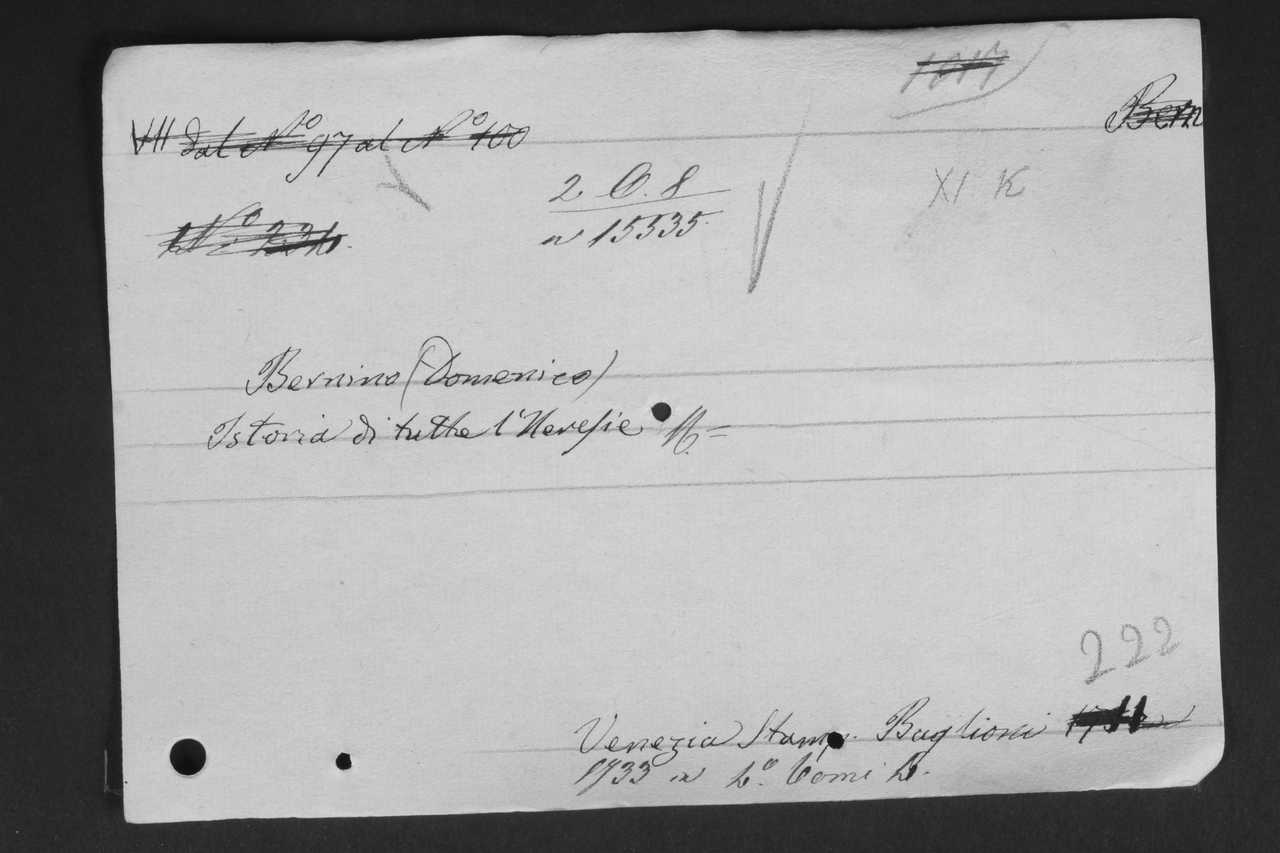 Bern
VII dal N° 97 al N° 100
XI K
2 C. 8
n 15535
Bernino (Domenico)
Istoria di tutte l'Heresie
222
Venezia Stamp. Baglioni
1733 in 4.° Tomi 4.